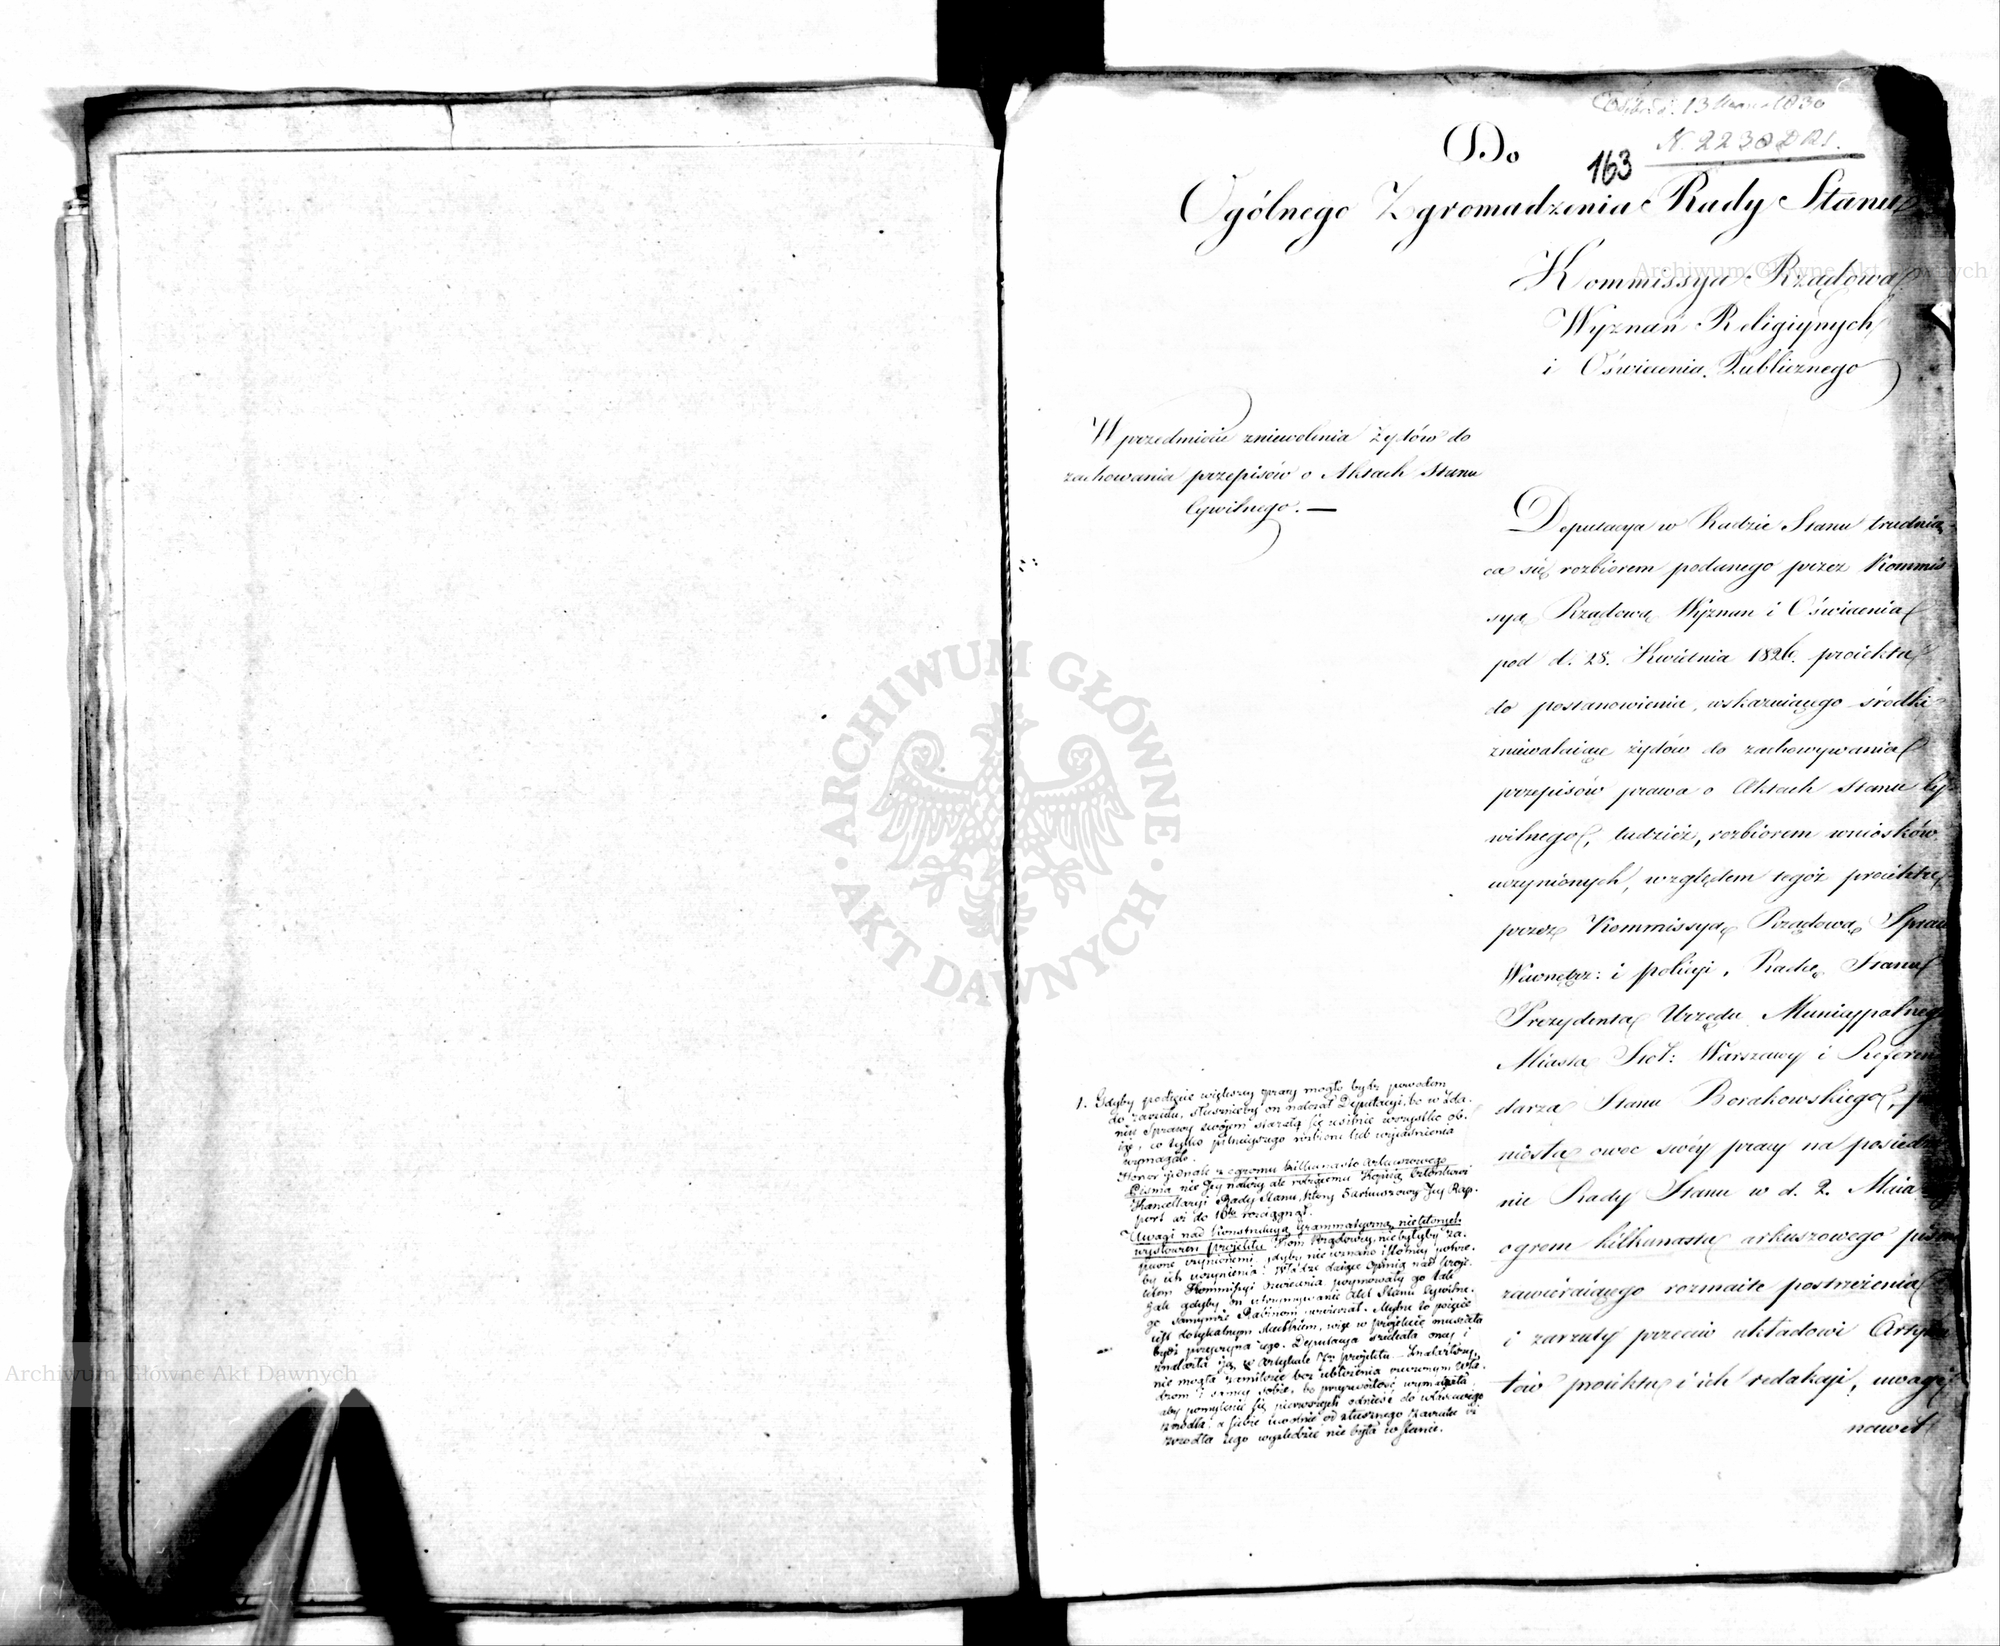 13 1830
N. 2230 D R S.
Do
163
Ogólnego Zgromadzenia Rady Stanu
Kommissya Rządowa
Wyznań Religiynych
i Oświecenia Publicznego
W przedmiocie zniewolenia Żydów do
zachowania przepisów o Aktach Stanu
Cywilnego. —
Deputacya w Radzie Stanu trudnią-
ca się rozbiorem podanego przez Kommis
syą Rządową Wyznan i Oświecenia
pod d. 28. Kwietnia 1826. proiektu
do postanowienia, wskazuiącego środki
zniewalaiące żydów do zachowywania
przepisów prawa o Aktach Stanu Cy
wilnego, tudzież, rozbiorem wniosków
uczynionych, względem tegoż proiektu,
przez Kommissyą Rządową Spraw
Wewnętrz: i policyi, Radcę Stanu
Prezydenta Urzędu Municypalnego
Miasta Stoł: Warszawy i Referen
darza Stanu Borakowskiego,
niosła owoc swéy pracy na posiedze
nie Rady Stanu w d. 2. Maia
ogrom kilkanastu arkuszowego pisma
zawieraiącego rozmaite postrzeżenia
i zarzuty przeciw układowi Artyku
łów proiektu i ich redakcyi, uwagi
nawet
1. Gdyby podięcie większey pracy mogło bydź powodem
do zarzutu, słusznieby on należał Deputacyi, bo w Zda-
niu Sprawy swoiem starała się usilnie wszystko ob-
iąć, co tylko pilnieyszego rozbioru lub wyiaśnienia
wymagało.
Honor iednak z ogromu kilkunasto arkuszowego
Pisma nie Jey należy ale rodzaiemu Kopistą Członkowi
Kancellaryi Rady Stanu, który 5 arkuszowy Jey Rap-
port aż do 16tu rozciągnął.
Uwagi nad konstrukcyą Grammatyczną niektórych
wysłowień projektu Kom Rządowey, niebyłyby za-
pewne uczynionemi, gdyby nie uznano istotney potrze-
by ich uczynienia. Władze daiące Opinią nad Proje-
ktem Kommissyi Oswiecenia poymowały go tak
iak gdyby on utrzymywanie Akt Stanu Cywilne-
go samymże Rabinom powierzał. Mylne to poięcie
iest dotykalnym skutkiem, więc w projekcie musiała
bydź przyczyna iego. Deputacya szukała oney i
znalazła ią w artykule 7m projektu. Znalazłszy,
nie mogła zamilczeć bez ubliżenia owczesnym Wła-
dzom i samey sobie, bo przyzwoitość wymagała
aby pomylenie się pierwszych odnieść do właściwego
źrodła, a siebie uwolnić od słusznego zarzutu iż
źrodła tego wyśledzić nie była w stanie.
ARCHIWUM GŁÓWNE
AKT DAWNYCH
Archiwum Główne Akt Dawnych
Archiwum Główne Akt Dawnych